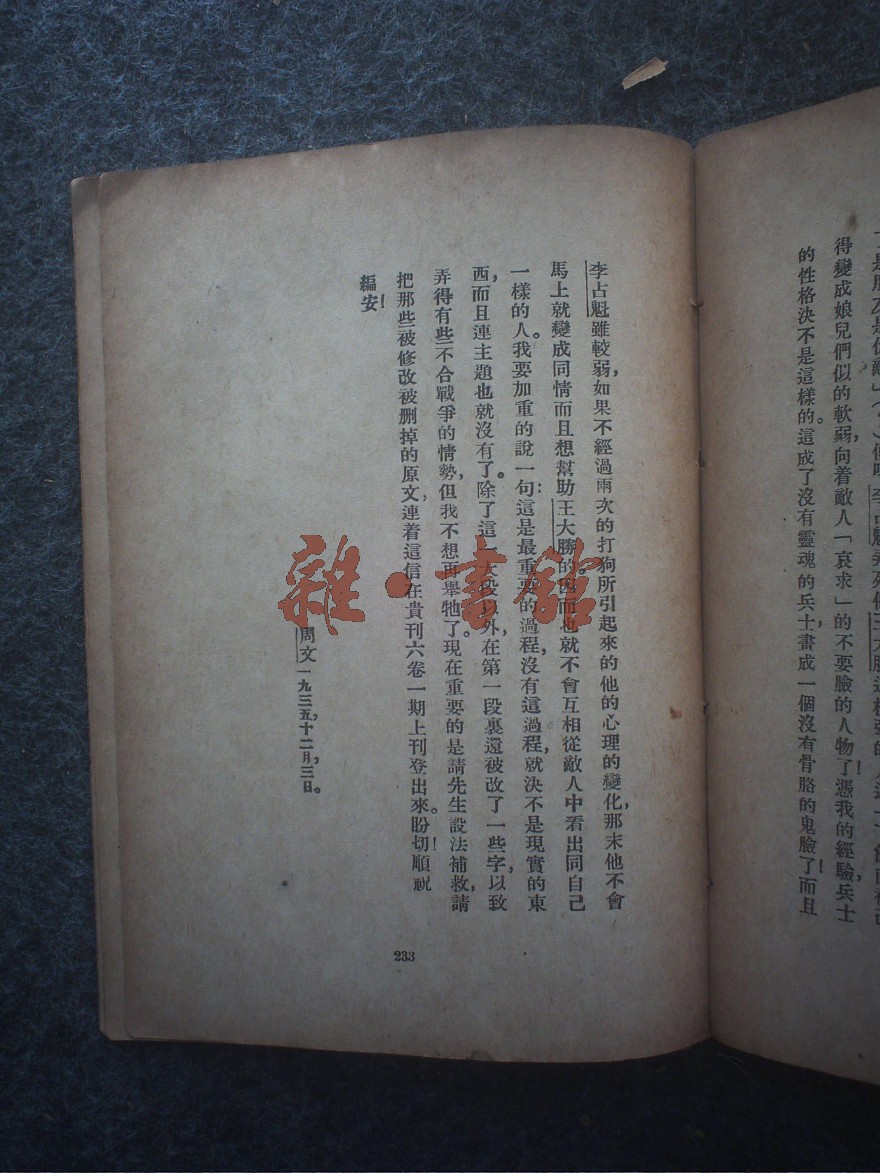 得變成娘兒們似的軟弱，向着敵人「哀求」的不要臉的人物了！憑我的經驗，兵士
的性格決不是這樣的。這成了沒有靈魂的兵士，畫成一個沒有骨胳的鬼臉了！而且
李占魁雖較弱，如果不經過兩次的打狗所引起來的他的心理的變化，那末他不會
馬上就變成同情而且想幫助王大勝的。因而也就不會互相從敵人中看出同自己
一樣的人。我要加重的說一句：這是最重要的過程，沒有這過程，就決不是現實的東
西，而且連主題也就沒有了。除了這一大段以外，在第一段裏還被改了一些字，以致
弄得有些不合戰爭的情勢，但我不想再舉牠了。現在重要的是請先生設法補救，請
把那些被修改被删掉的原文，連着這信在貴刊六卷一期上刊登出來。盼切！順祝
編安！
周文一九三五，十二月，三日。
233
雜·書館